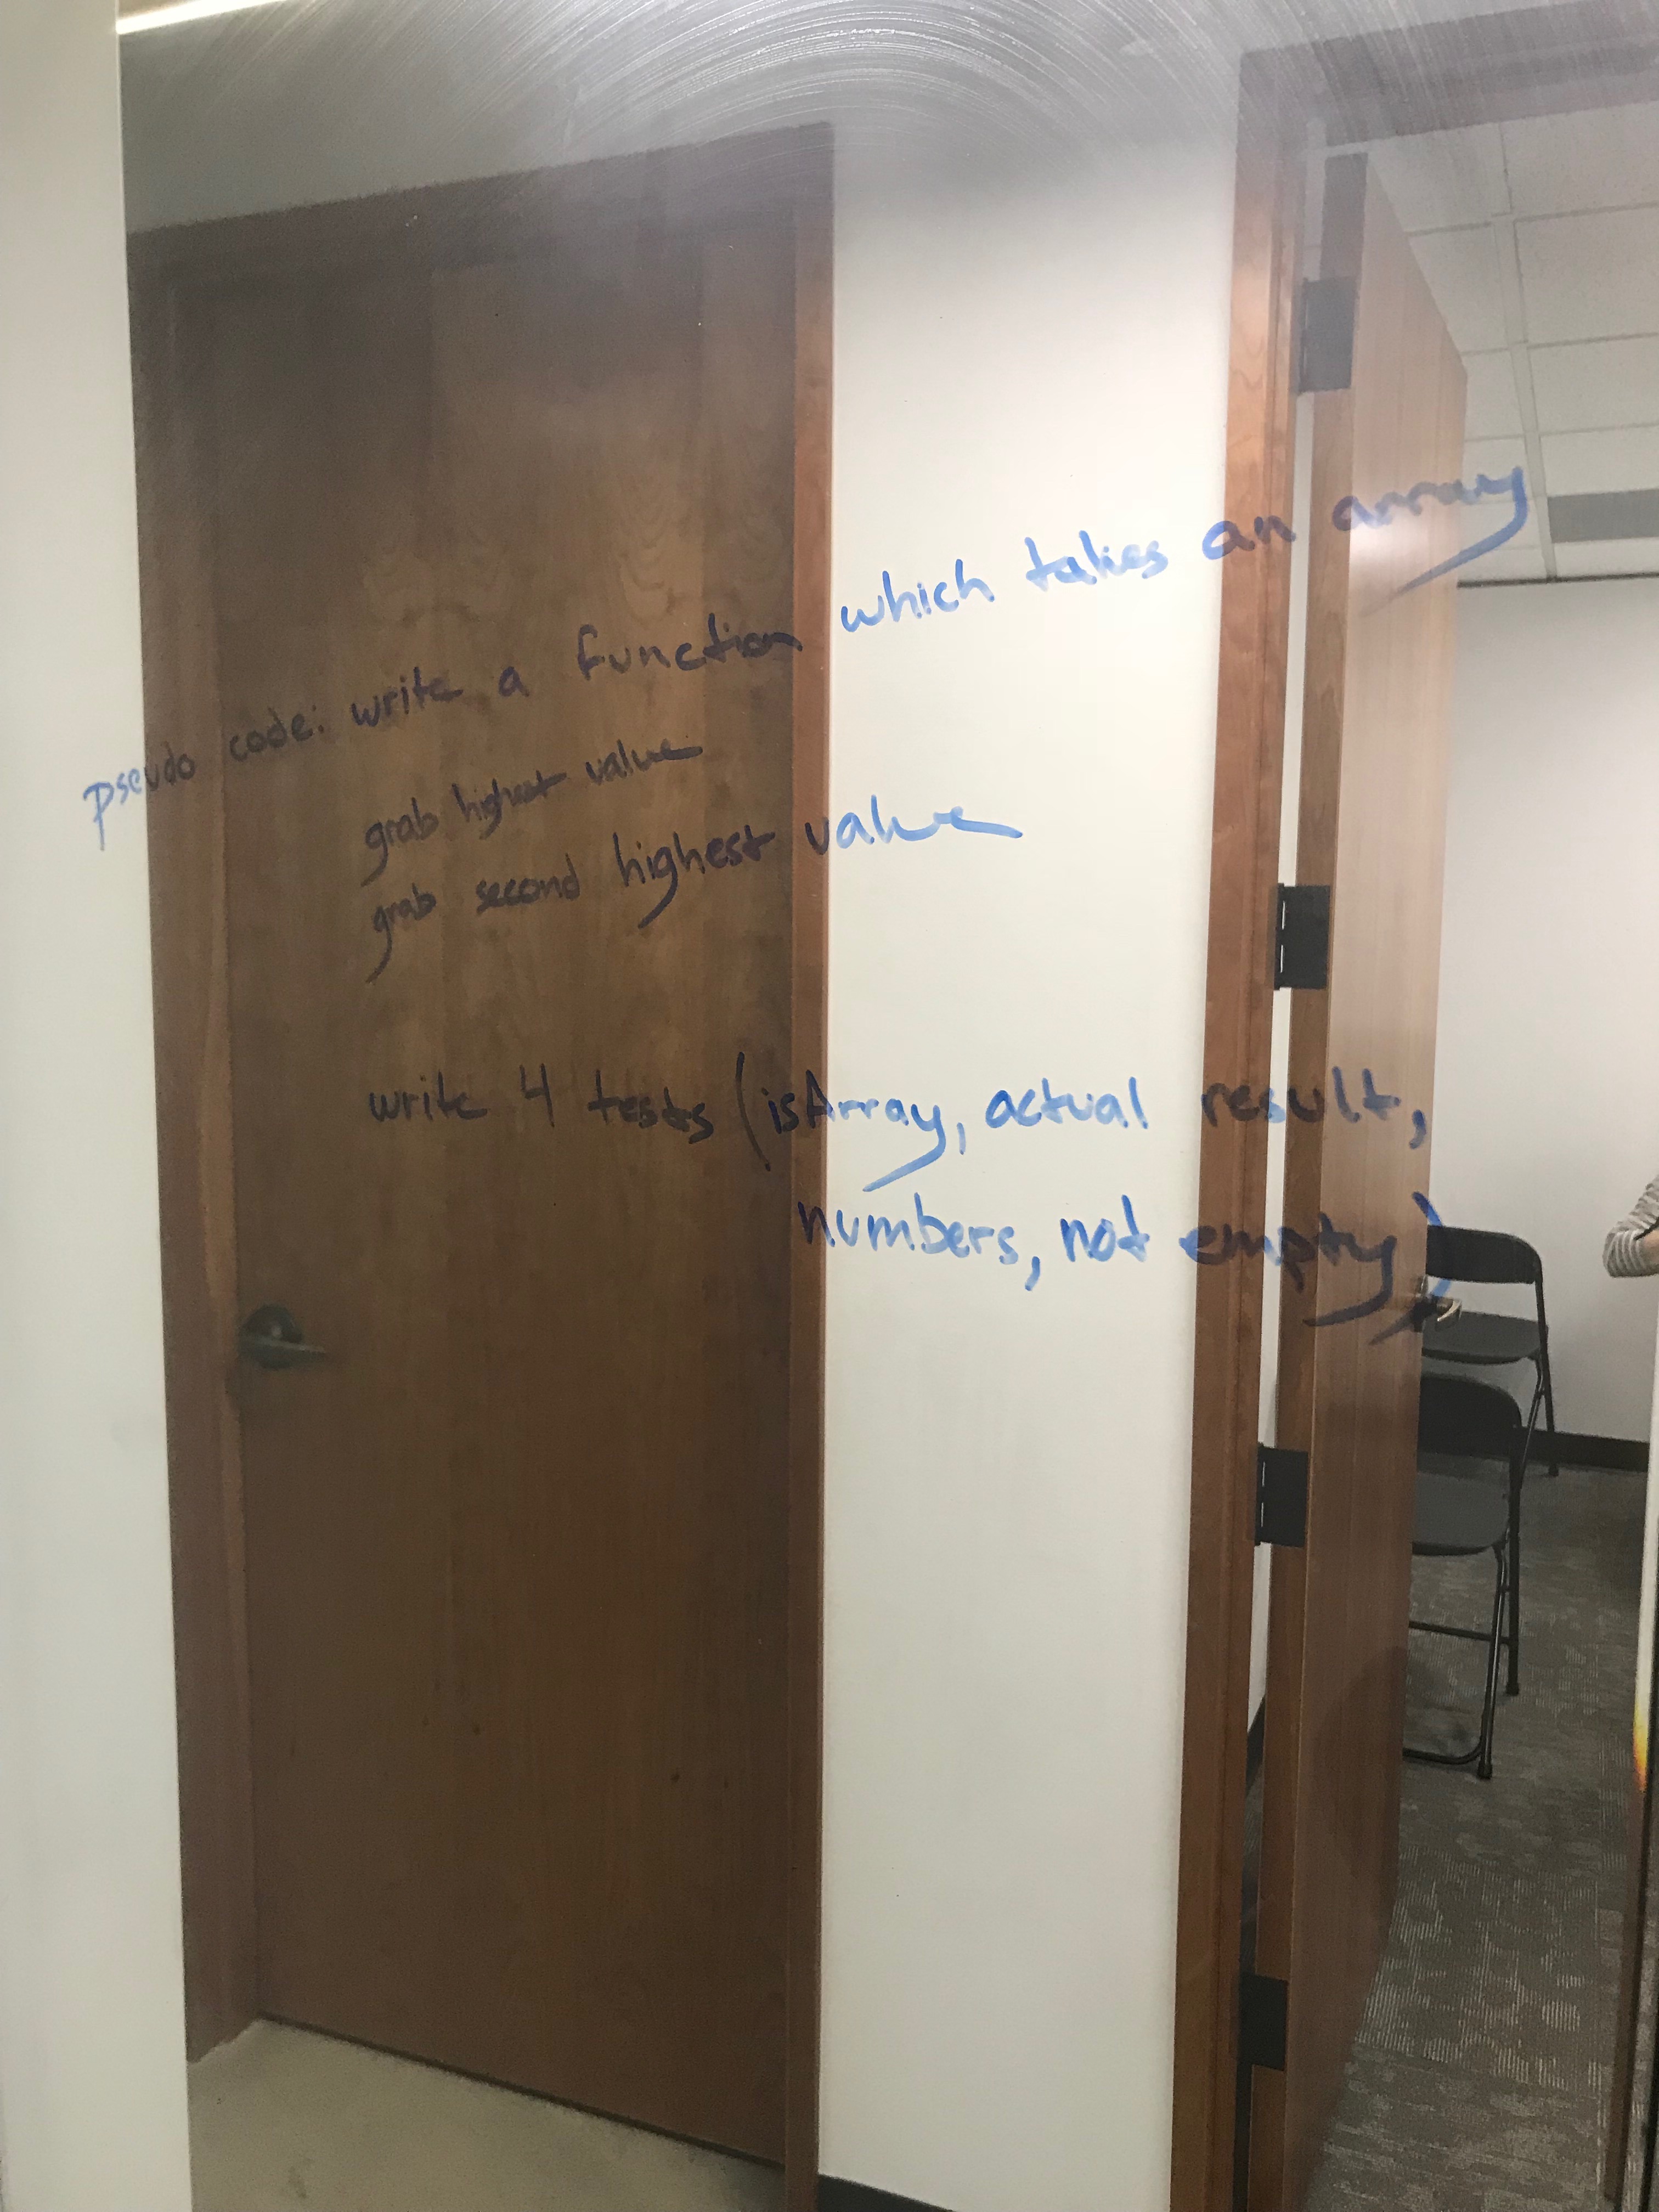 pseudo code: write a function which takes an array
grab highest value
grab second highest value
write 4 tests (isArray, actual result,
numbers, not empty)